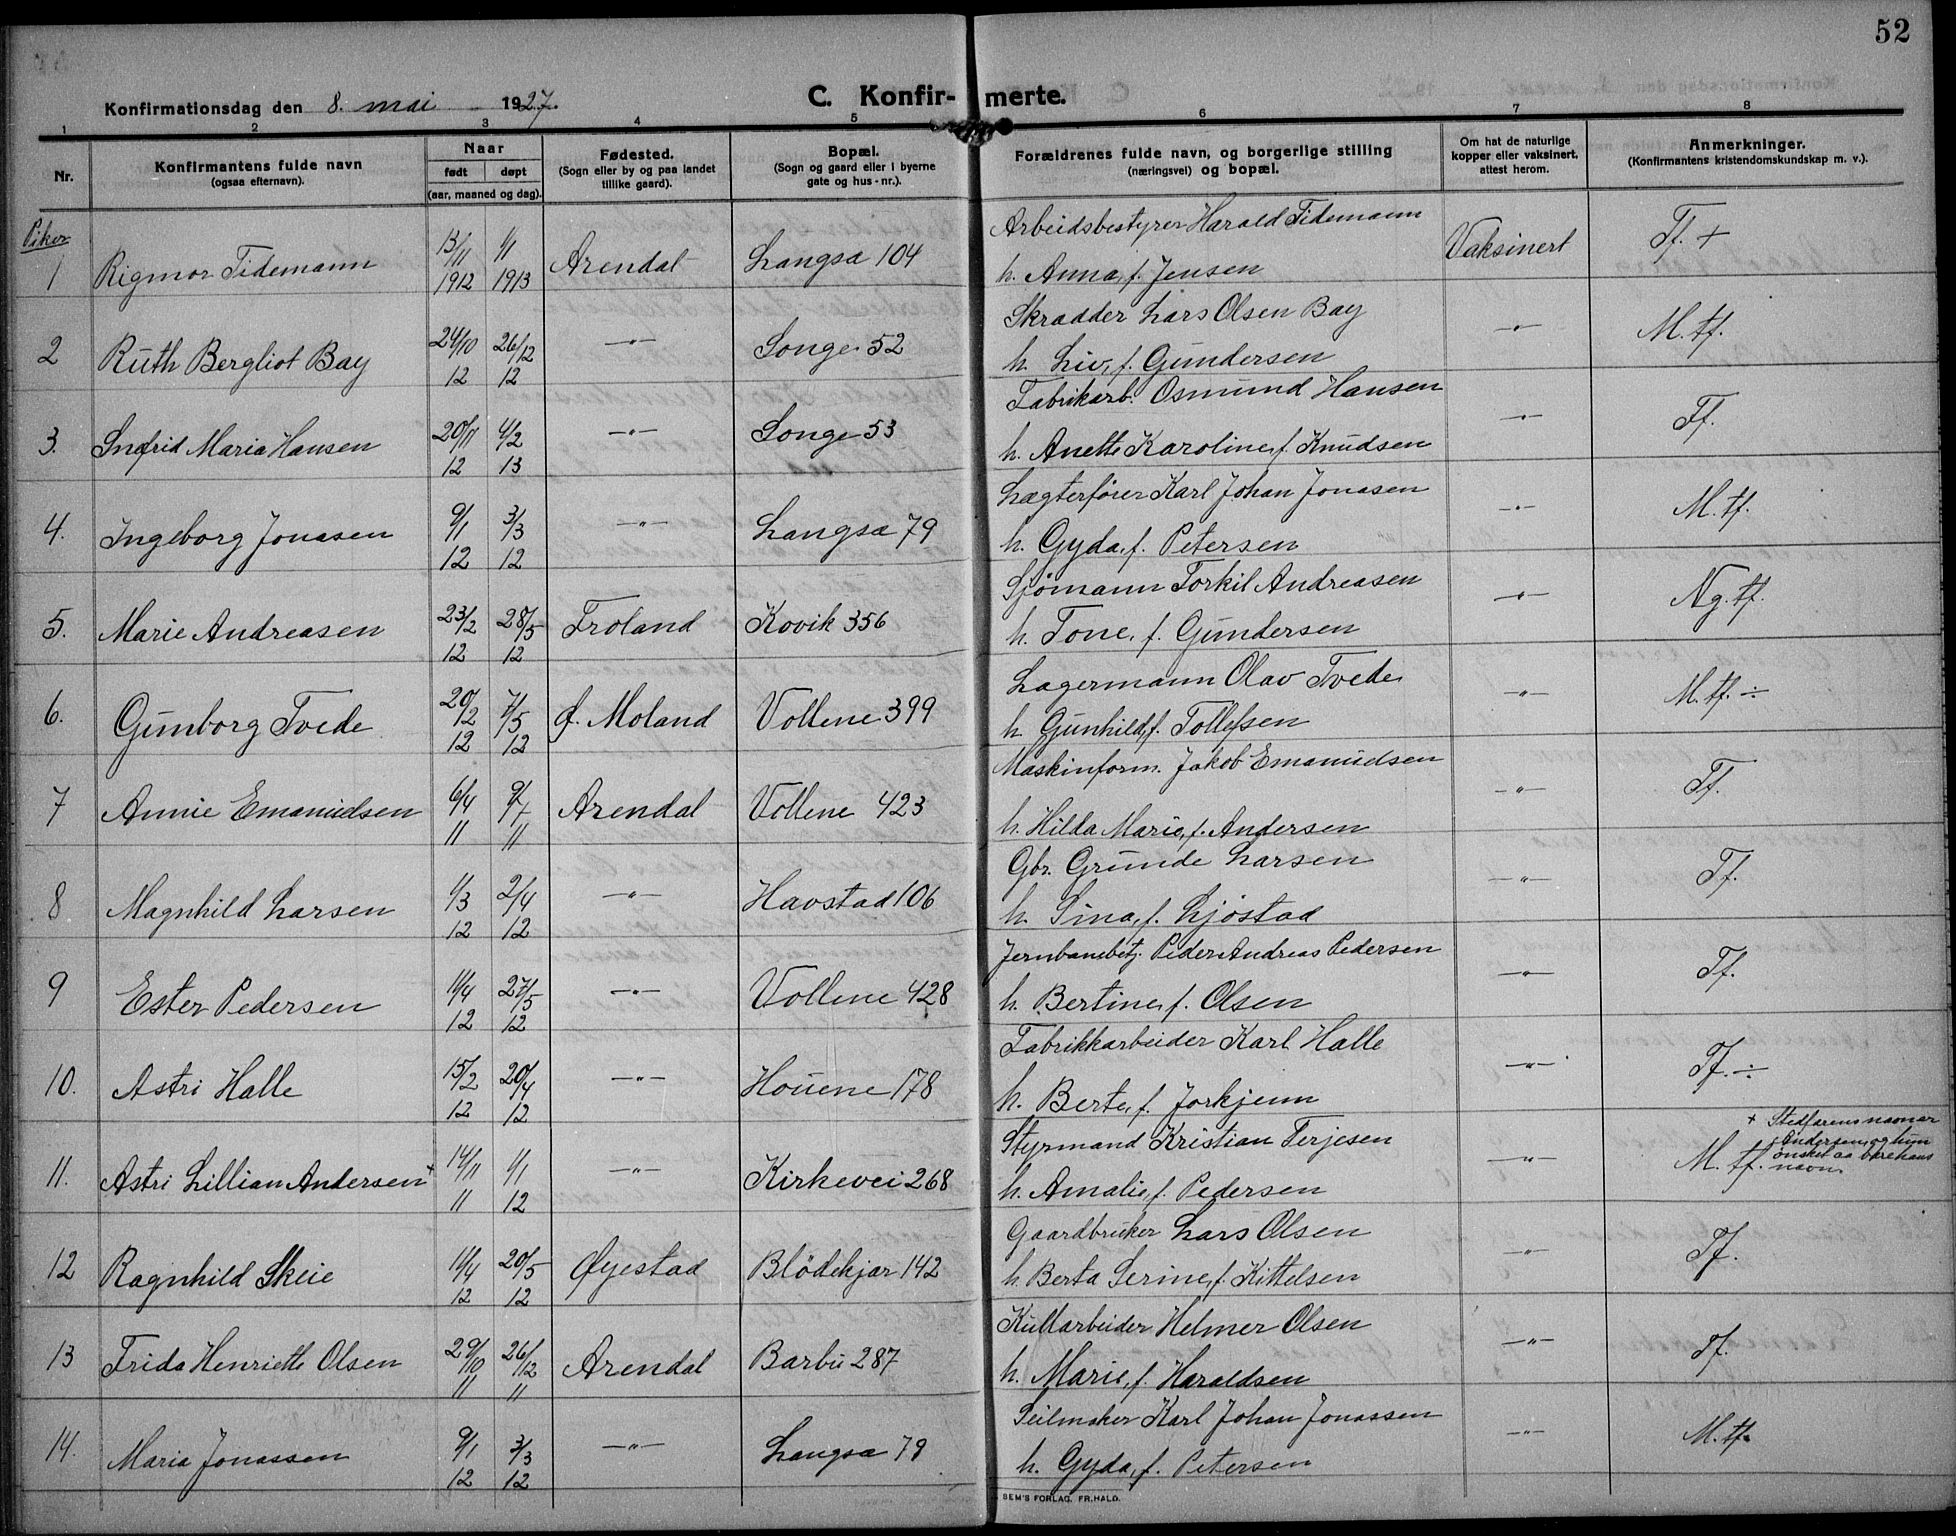 52
Konfirmationsdag den 8. mai 1927.
C. Konfirmerte.
1 2 3 4 5 6 7 8
Nr.
Konfirmantens fulde navn
(ogsaa efternavn).
Naar
født døpt
(aar, maaned og dag).
Fødested.
(Sogn eller by og paa landet
tillike gaard).
Bopæl.
(Sogn og gaard eller i byerne
gate og hus-nr.).
Forældrenes fulde navn, og borgerlige stilling
(næringsvei) og bopæl.
Om hat de naturlige
kopper eller vaksinert,
attest herom.
Anmerkninger.
(Konfirmantens kristendomskundskap m. v.).
Piker
1 Rigmor Tidemann 13/11 1912 1/1 1913 Arendal Langsæ 104
Arbeidsbestyrer Harald Tidemann
h. Anna, f. Jensen
Vaksinert Tf. +
2 Ruth Bergliot Bay 24/10 12 26/12 12 —"— Songe 52
Skrædder Lars Olsen Bay
h. Liv, f. Gundersen
—"— M. tf.
3. Ingrid Marie Hansen 20/11 12 4/2 13 —"— Songe 53
Fabrikarb. Osmund Hansen
h. Anette Karoline, f. Knudsen
—"— Tf.
4. Ingeborg Jonasen 9/1 12 3/3 12 —"— Langsæ 79
Lægterfører Karl Johan Jonasen
h. Gyda, f. Petersen
—"— M. tf.
5. Marie Andreasen 23/2 12 28/5 12 Froland Kovik 356
Sjømann Torkil Andreasen
h. Tone, f. Gundersen
—"— Ng. tf.
6. Gunborg Tvede 20/2 12 7/5 12 Ø. Moland Vollene 399
Lagermann Olav Tvede
h Gunhild, f. Tollefsen
—"— M. tf. ÷
7 Annie Emanuelsen 6/4 11 9/7 11 Arendal Vollene 423
Maskinform. Jakob Emanuelsen
h. Hilda Marie, f. Andersen
—"— Tf.
8 Magnhild Larsen 1/3 12 2/4 12 —"— Havstad 106
Gbr. Grunde Larsen
h. Sina, f. Ljøstad
—"— Tf.
9 Ester Pedersen 11/4 12 27/5 12 —"— Vollene 428
Jernbanebetj. Peder Andreas Pedersen
h. Bertine, f. Olsen
—"— Tf.
10. Astri Halle 15/2 12 20/4 12 —"— Houene 178
Fabrikkarbeider Karl Halle
h. Berte, f. Jorkjenn
—"— Tf. ÷
11. Astri Lillian Andersen + 14/11 11 1/1 12 —"— Kirkevei 268
Styrmand Kristian Terjesen
h. Amalie, f. Pedersen
—"— M. tf.
+ Stedfarens navn er
Andersen, og hun
ønsket aa bære hans
navn.
12 Ragnhild Skeie 11/4 12 20/5 12 Øyestad Blödekjær 142
Gaardbruker Lars Olsen
h Berta Serine, f. Kittelsen
—"— Tf.
13 Frida Henriette Olsen 29/10 11 26/12 11 Arendal Barbu 287
Kullarbeider Helmer Olsen
h. Marie, f. Haraldsen
—"— Tf.
14. Maria Jonassen 9/1 12 3/3 12 —"— Langsæ 79
Seilmaker Karl Johan Jonassen
h. Gyda, f. Petersen
—"— M. tf.
SEM'S FORLAG. FR. HALD.